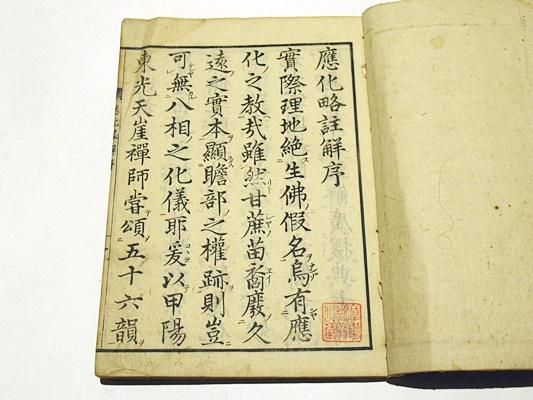 應化略註解序
實際理地絶生佛假名烏有應
化之敎哉雖然甘蔗苗裔厪久
遠之實本顯贍部之權跡則豈
可無八相之化儀耶爰以甲陽
東光天崖禪師甞頌五十六韻